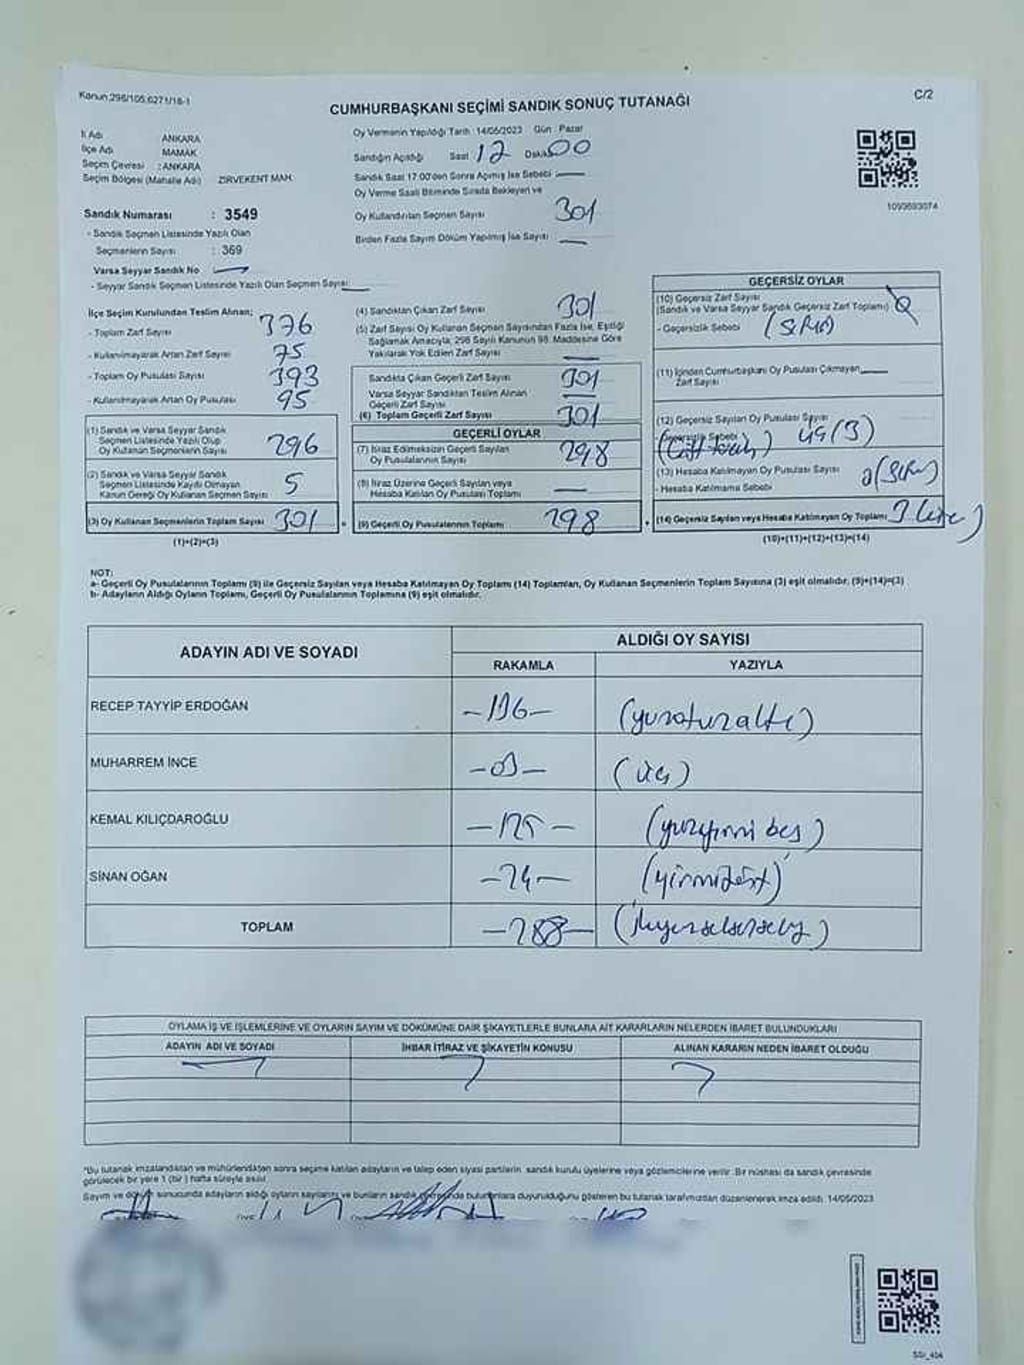 Kanun:298/105,6271/18-1
C/2
CUMHURBAŞKANI SEÇİMİ SANDIK SONUÇ TUTANAĞI
İl Adı ANKARA
İlçe Adı MAMAK
Seçim Çevresi : ANKARA
Seçim Bölgesi (Mahalle Adı) ZİRVEKENT MAH.
Sandık Numarası : 3549
- Sandık Seçmen Listesinde Yazılı Olan
Seçmenlerin Sayısı : 369
Varsa Seyyar Sandık No
- Seyyar Sandık Seçmen Listesinde Yazılı Olan Seçmen Sayısı
Oy Vermenin Yapıldığı Tarih : 14/05/2023 Gün : Pazar
Sandığın Açıldığı Saat 17 Dakika 00
Sandık Saat 17:00'den Sonra Açılmış İse Sebebi
Oy Verme Saati Bitiminde Sırada Bekleyen ve
Oy Kullandırılan Seçmen Sayısı 301
Birden Fazla Sayım Döküm Yapılmış İse Sayısı
1093693074
İlçe Seçim Kurulundan Teslim Alınan;
- Toplam Zarf Sayısı 376
- Kullanılmayarak Artan Zarf Sayısı 75
- Toplam Oy Pusulası Sayısı 393
- Kullanılmayarak Artan Oy Pusulası 95
(1) Sandık ve Varsa Seyyar Sandık
Seçmen Listesinde Yazılı Olup
Oy Kullanan Seçmenlerin Sayısı 296
(2) Sandık ve Varsa Seyyar Sandık
Seçmen Listesinde Kaydı Olmayan
Kanun Gereği Oy Kullanan Seçmen Sayısı 5
(3) Oy Kullanan Seçmenlerin Toplam Sayısı 301
(1)+(2)=(3)
(4) Sandıktan Çıkan Zarf Sayısı 301
(5) Zarf Sayısı Oy Kullanan Seçmen Sayısından Fazla İse, Eşitliği
Sağlamak Amacıyla, 298 Sayılı Kanunun 98. Maddesine Göre
Yakılarak Yok Edilen Zarf Sayısı
Sandıkta Çıkan Geçerli Zarf Sayısı 301
Varsa Seyyar Sandıktan Teslim Alınan
Geçerli Zarf Sayısı
(6) Toplam Geçerli Zarf Sayısı 301
GEÇERLİ OYLAR
(7) İtiraz Edilmeksizin Geçerli Sayılan
Oy Pusulalarının Sayısı 298
(8) İtiraz Üzerine Geçerli Sayılan veya
Hesaba Katılan Oy Pusulası Toplamı
= (9) Geçerli Oy Pusulalarının Toplamı 298
GEÇERSİZ OYLAR
(10) Geçersiz Zarf Sayısı
(Sandık ve Varsa Seyyar Sandık Geçersiz Zarf Toplamı) 0
- Geçersizlik Sebebi (SIFIR)
(11) İçinden Cumhurbaşkanı Oy Pusulası Çıkmayan
Zarf Sayısı
(12) Geçersiz Sayılan Oy Pusulası Sayısı
Geçersizlik Sebebi üç (3)
(13) Hesaba Katılmayan Oy Pusulası Sayısı
- Hesaba Katılmama Sebebi 0 (SIFIR)
+ (14) Geçersiz Sayılan veya Hesaba Katılmayan Oy Toplamı 3 (üç)
(10)+(11)+(12)+(13)=(14)
NOT:
a- Geçerli Oy Pusulalarının Toplamı (9) ile Geçersiz Sayılan veya Hesaba Katılmayan Oy Toplamı (14) Toplamları, Oy Kullanan Seçmenlerin Toplam Sayısına (3) eşit olmalıdır. (9)+(14)=(3)
b- Adayların Aldığı Oyların Toplamı, Geçerli Oy Pusulalarının Toplamına (9) eşit olmalıdır.
ADAYIN ADI VE SOYADI
ALDIĞI OY SAYISI
RAKAMLA YAZIYLA
RECEP TAYYİP ERDOĞAN -136- (yüzotuzaltı)
MUHARREM İNCE -03- (üç)
KEMAL KILIÇDAROĞLU -125- (yüzyirmi beş)
SİNAN OĞAN -24- (yirmidört)
TOPLAM -288- (ikiyüzseksensekiz)
OYLAMA İŞ VE İŞLEMLERİNE VE OYLARIN SAYIM VE DÖKÜMÜNE DAİR ŞİKAYETLERLE BUNLARA AİT KARARLARIN NELERDEN İBARET BULUNDUKLARI
ADAYIN ADI VE SOYADI İHBAR İTİRAZ VE ŞİKAYETİN KONUSU ALINAN KARARIN NEDEN İBARET OLDUĞU
*Bu tutanak imzalandıktan ve mühürlendikten sonra seçime katılan adayların ve talep eden siyasi partilerin sandık kurulu üyelerine veya gözlemcilerine verilir. Bir nüshası da sandık çevresinde
görülecek bir yere 1 (bir) hafta süreyle asılır.
Sayım ve döküm sonucunda adayların aldığı oyların sayılarını ve bunların sandık çevresinde bulunanlara duyurulduğunu gösteren bu tutanak tarafımızdan düzenlenerek imza edildi. 14/05/2023